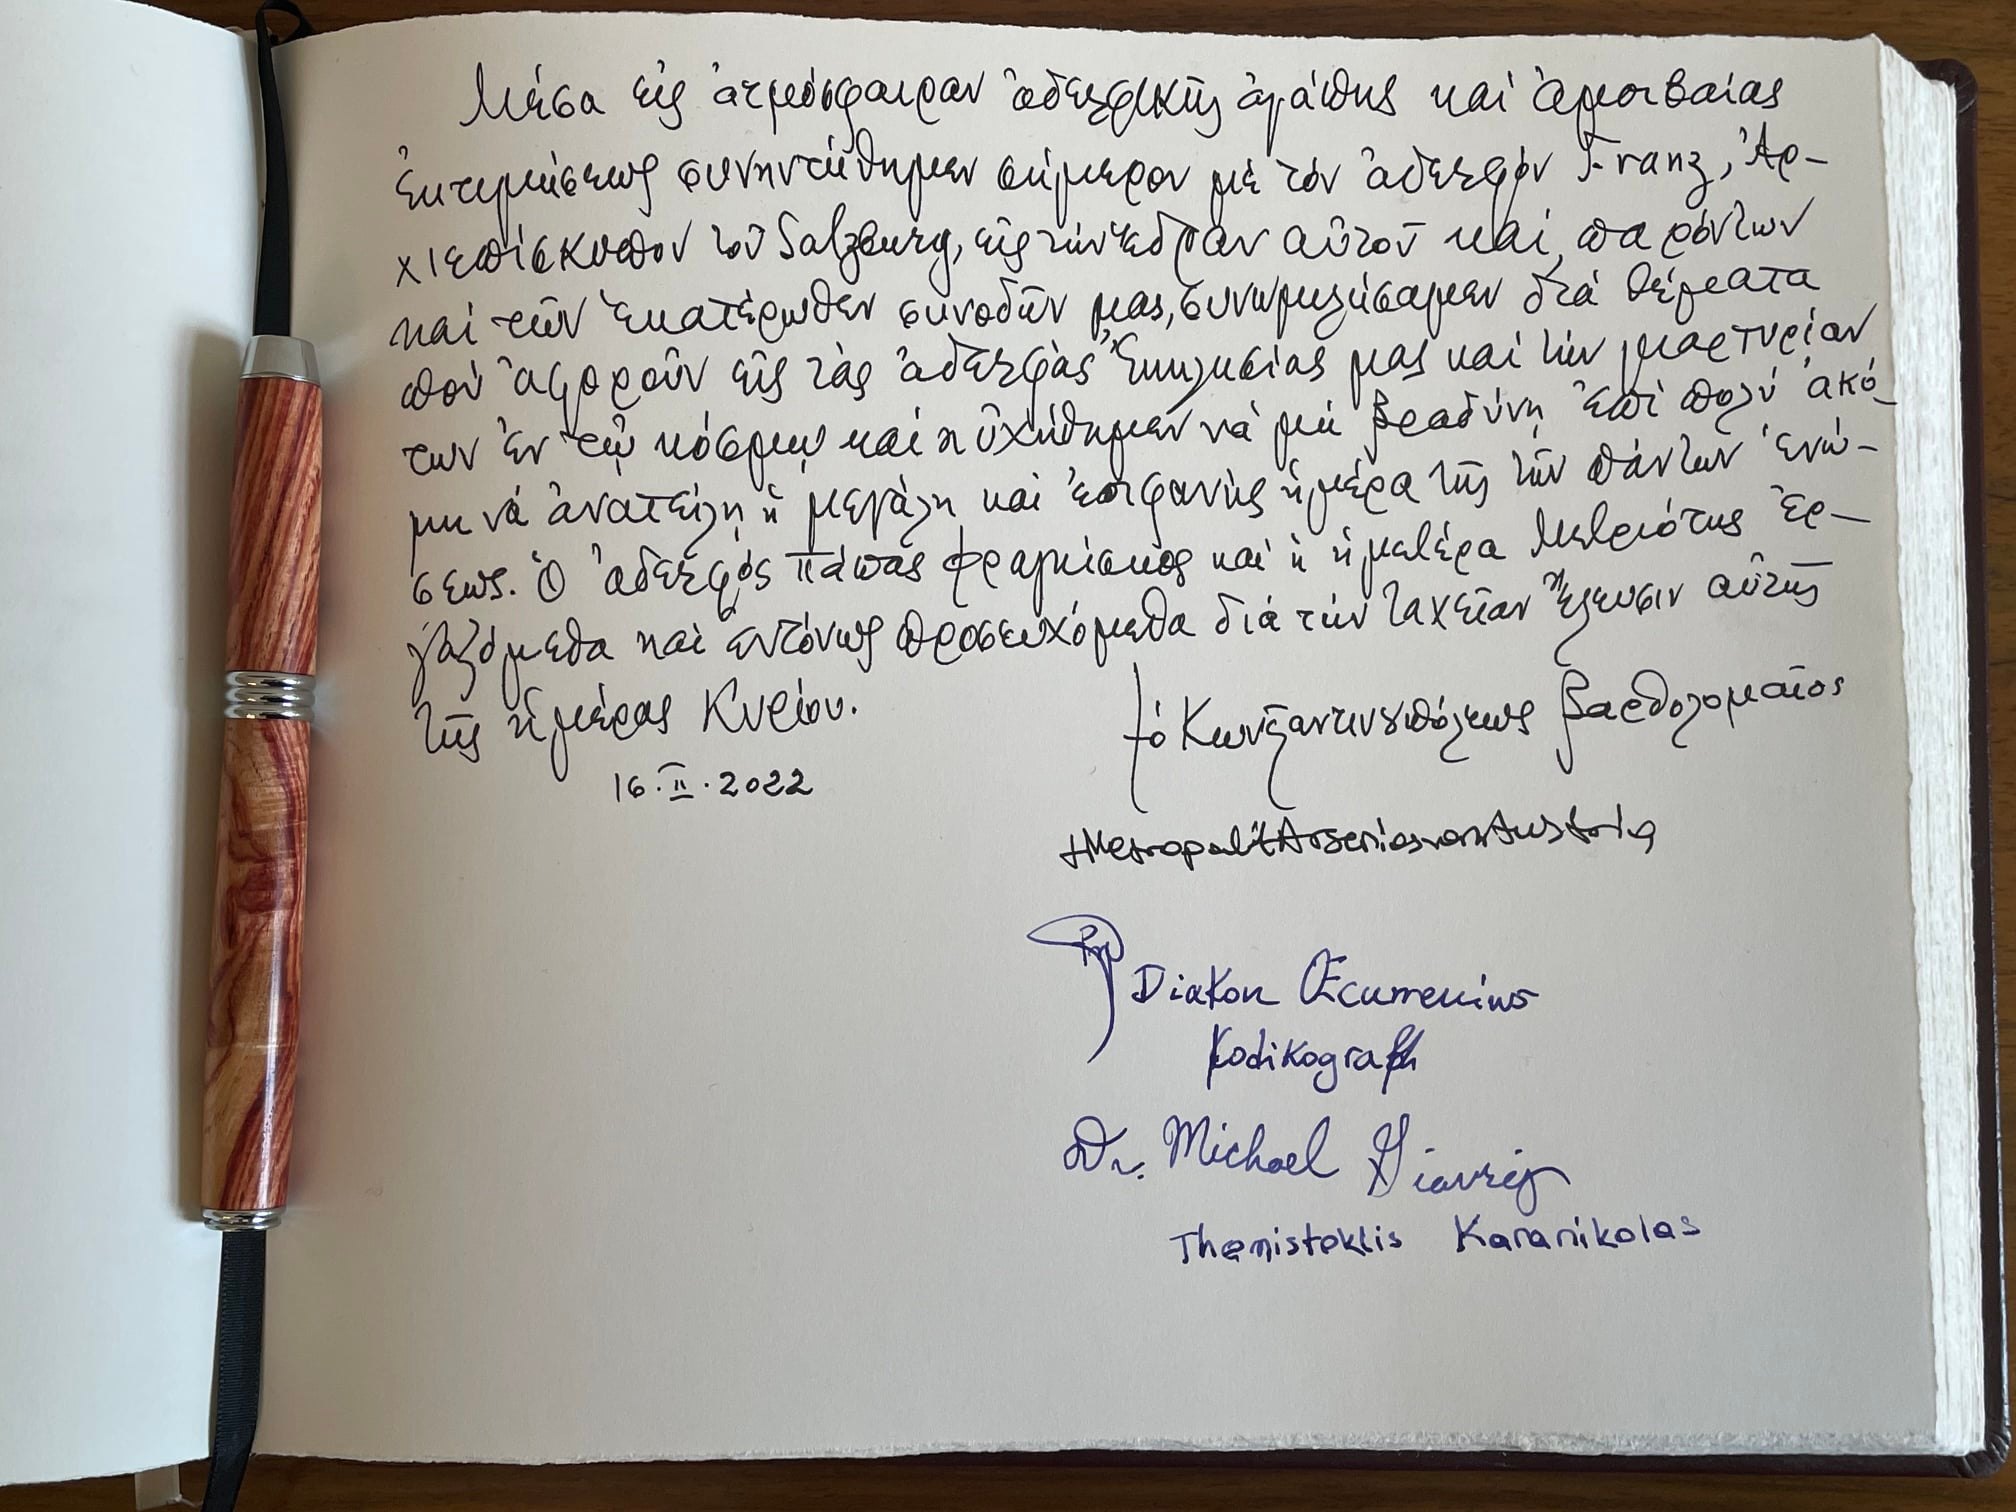 Μέσα εἰς ἀτμόσφαιραν ἀδελφικῆς ἀγάπης καί ἀμοιβαίας
ἐκτιμήσεως συνηντήθημεν σήμερον μέ τόν ἀδελφόν Franz, Ἀρ-
χιεπίσκοπον τοῦ Salzburg, εἰς τήν ἕδραν αὐτοῦ καί, παρόντων
καί τῶν ἑκατέρωθεν συνοδῶν μας, συνωμιλήσαμεν διά θέματα
πού ἀφοροῦν εἰς τάς ἀδελφάς Ἐκκλησίας μας καί τήν μαρτυρίαν
των ἐν τῷ κόσμῳ καί ηὐχήθημεν νά μή βραδύνῃ ἐπί πολύ ἀκό-
μη νά ἀνατείλῃ ἡ μεγάλη καί ἐπιφανής ἡμέρα τῆς τῶν πάντων ἑνώ-
σεως. Ὁ ἀδελφός Πάπας Φραγκίσκος καί ἡ ἡμετέρα Μετριότης ἐρ-
γαζόμεθα καί ἐντόνως προσευχόμεθα διά τήν ταχεῖαν ἔλευσιν αὐτῆς
τῆς ἡμέρας Κυρίου.
†ὁ Κωνϛαντινουπόλεως Βαρθολομαῖος
16.II.2022
+Metropolit Arsenios von Austria
Diakon Œcumenius
Kodikograph
Dr. Michael
Themistoklis Karanikolas